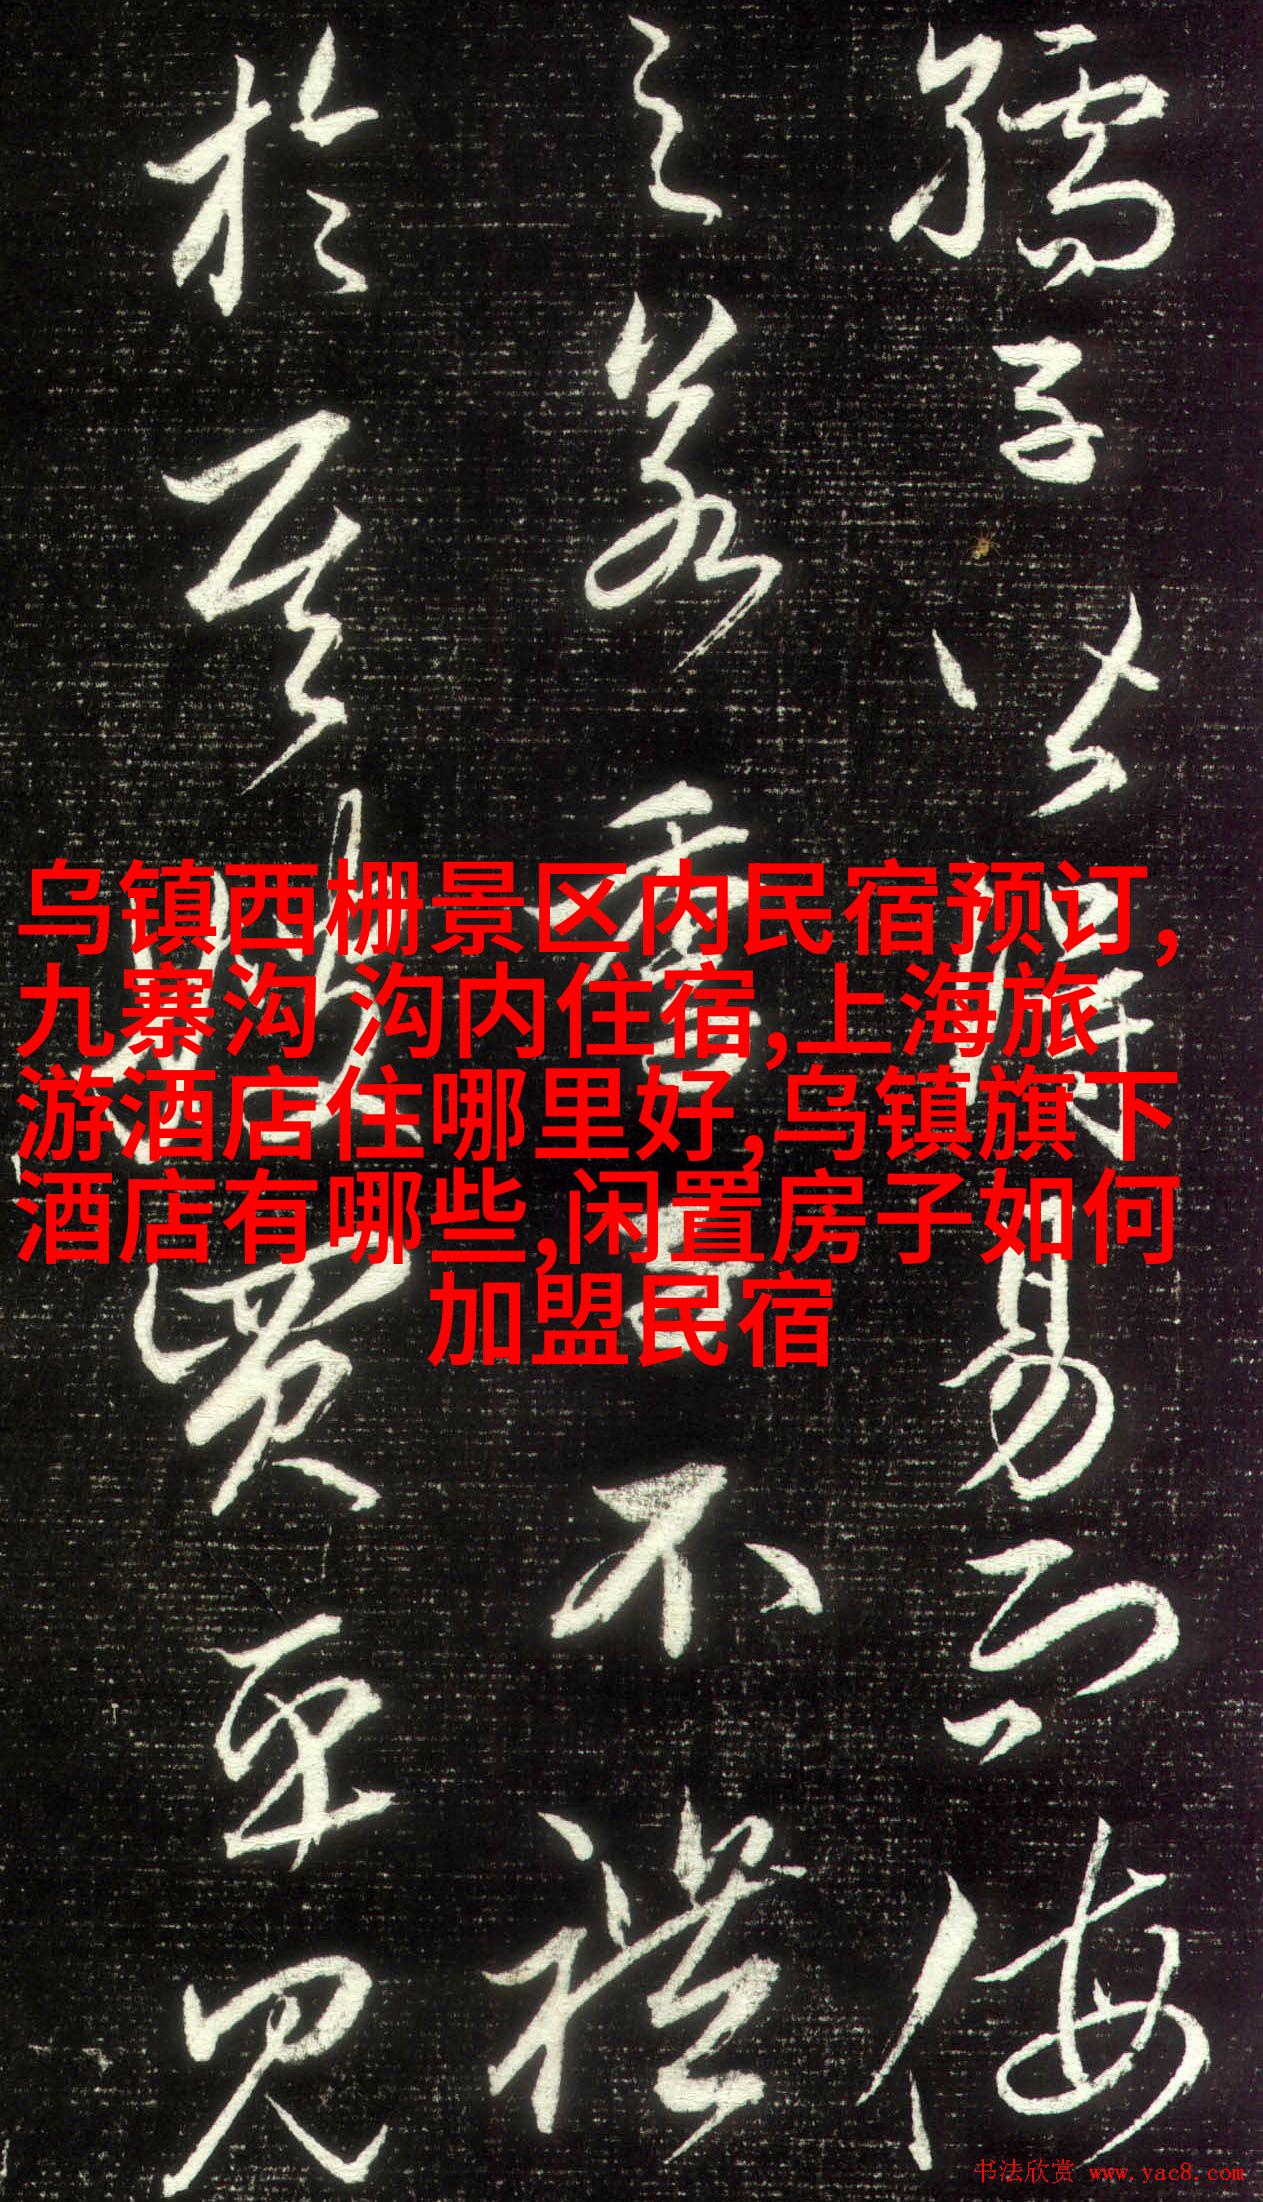 孺子以得易而侮
之若重言不禮
於其見
乌镇西栅景区内民宿预订,
九寨沟 沟内住宿,上海旅
游酒店住哪里好,乌镇旗下
酒店有哪些,闲置房子如何
加盟民宿
书法欣赏 www.yac8.com